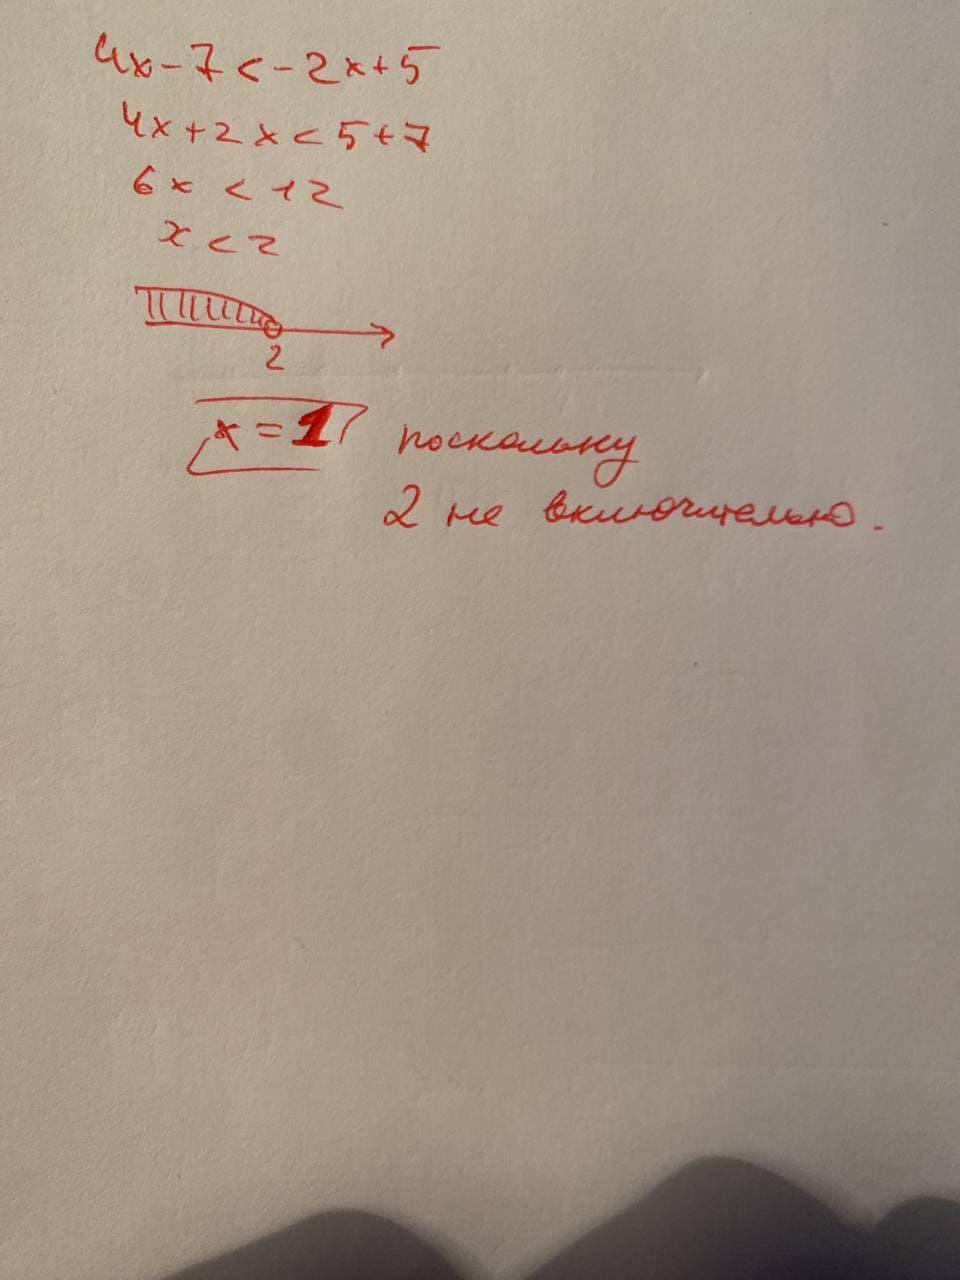 4x-7<-2x+5
4x+2x<5+7
6x<12
x<2
2
x=1 поскольку
2 не включительно.